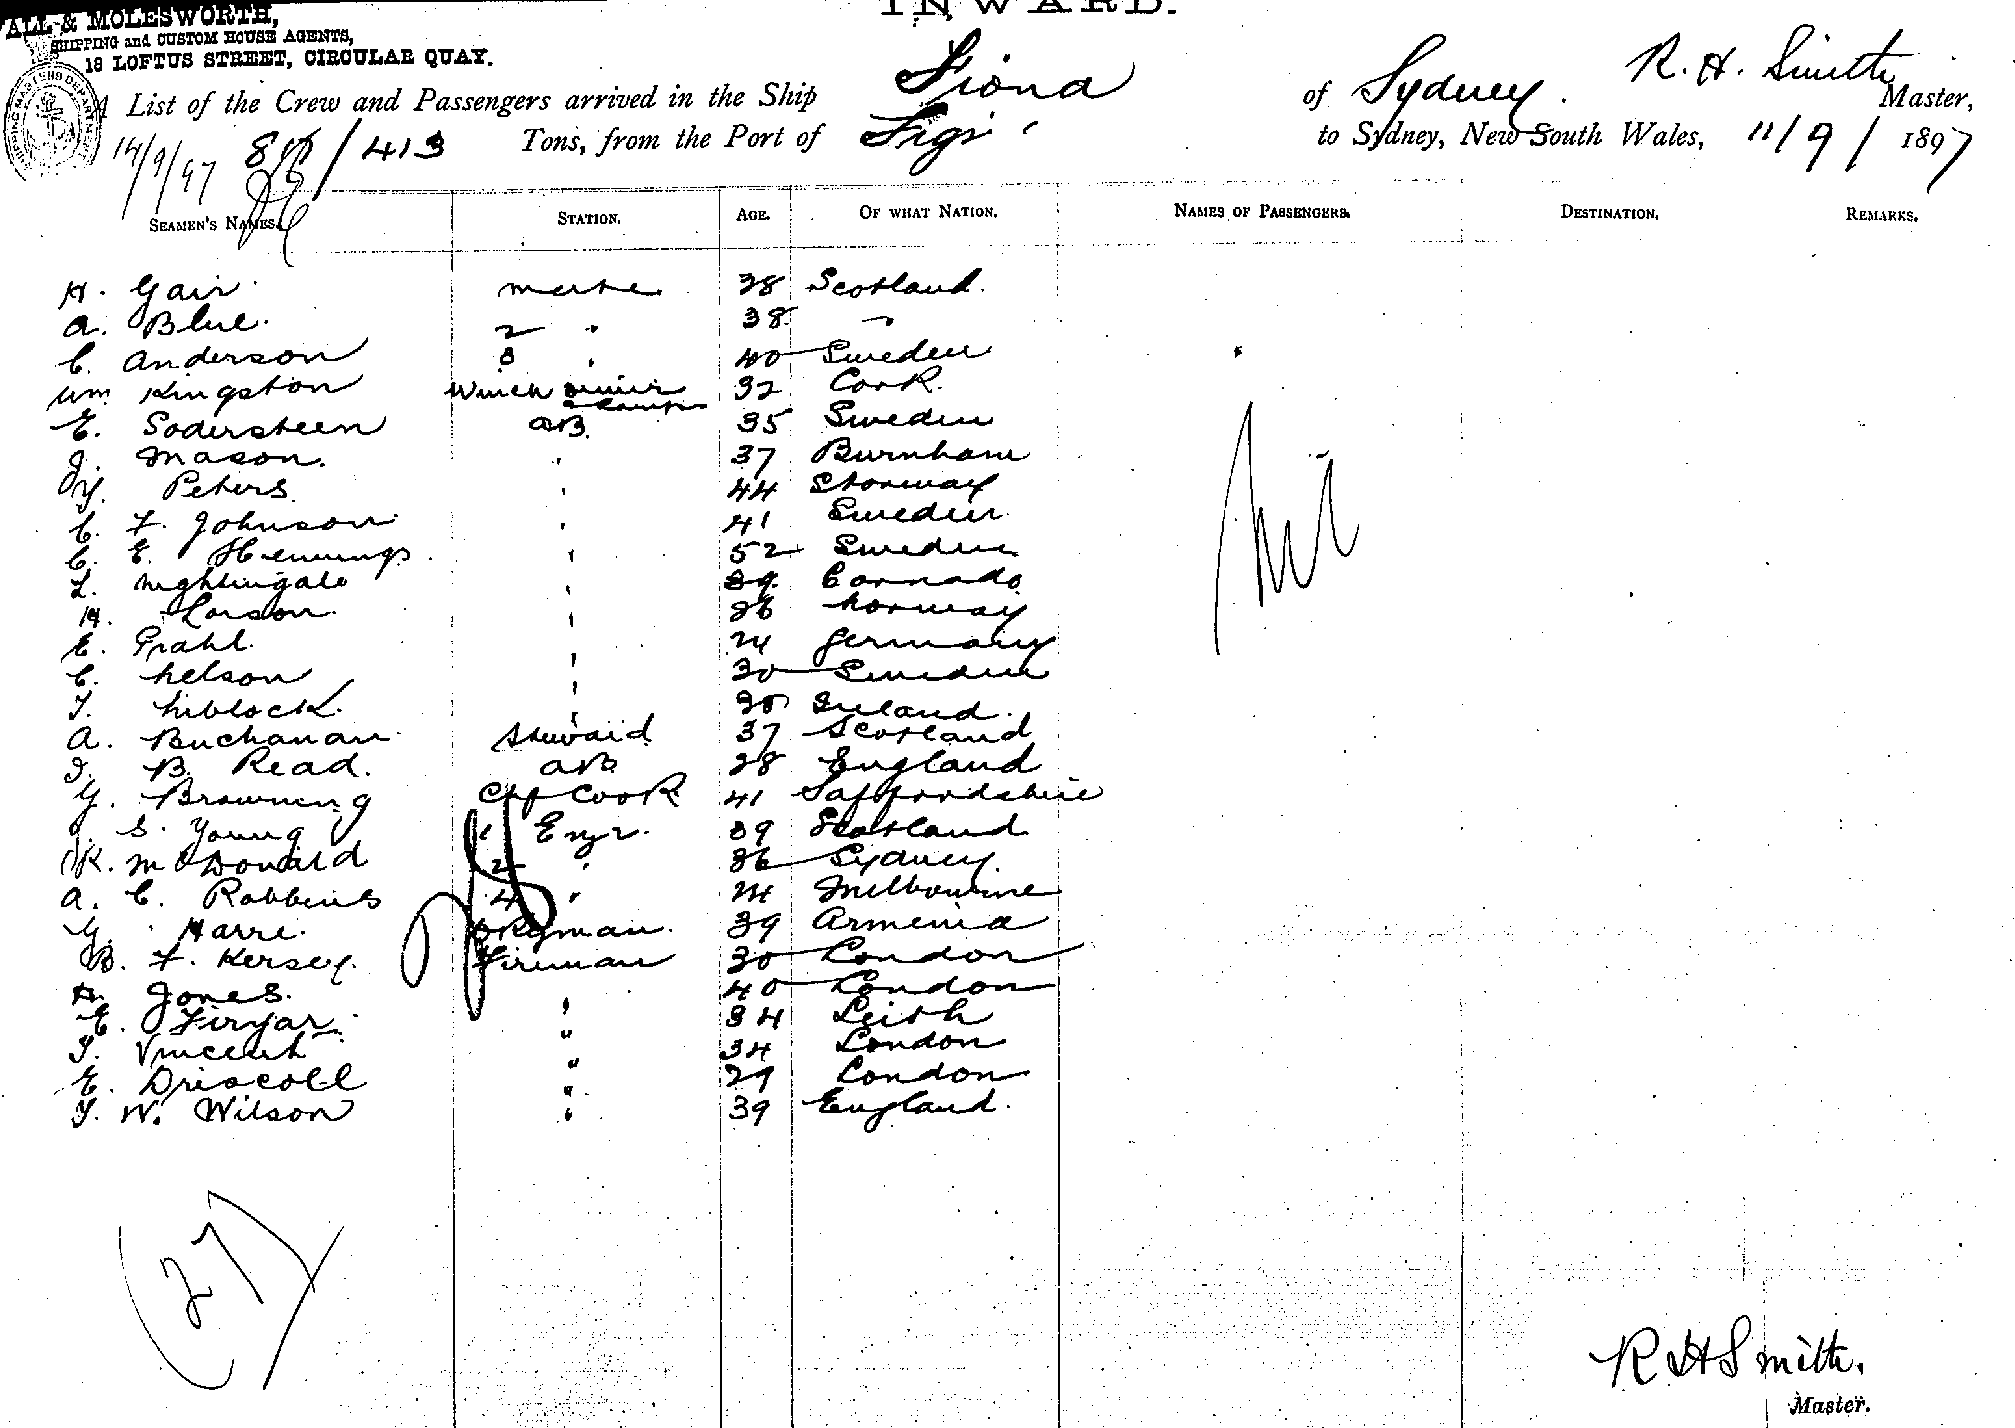 INWARD.
ALL & MOLESWORTH,
SHIPPING and CUSTOM HOUSE AGENTS,
18 LOFTUS STREET, CIRCULAR QUAY.
A List of the Crew and Passengers arrived in the Ship Fiona of Sydney. R. H. Smith Master,
14/9/97 / 413 Tons, from the Port of Figi to Sydney, New South Wales, 11/9/1897
SEAMEN'S NAMES. STATION. AGE. OF WHAT NATION. NAMES OF PASSENGERS. DESTINATION. REMARKS.
H. Gair mate 38 Scotland.
A. Blue. 2 " 38 "
C. Anderson 3 " 40 Sweden
Wm Kingston Winch 32 Cork.
E. Sodersteen AB. 35 Sweden
J. Mason. " 37 Burnham
Y. Peters " 44 Storway
C. F. Johnson " 41 Sweden
C. E. Hennings " 52 Sweden
L. Nightingale " 39 Cannada
H. Larson " 26 Norway
E. Prahl. " 24 Germany
C. Nelson " 30 Sweden
T. Niblock. " Ireland.
A. Buchanan Steward 37 Scotland
J. B. Read. AB 28 England
G. Browning Cook 41 Saffordshire
J. S. Young 1 Engr. 39 Scotland
K. McDonald 2 " 36 Sydney.
A. C. Robbins 4 " 24 Melbourne
G. Harre. Dkyman. 39 Armenia
B. F. Kersey. Fireman 30 London
H. Jones. " 40 London
E. Firyar " 34 Leith
T. Vincent " 34 London
E. Driscoll " 29 London
T. W. Wilson " 39 England.
Nil
(27)
R H Smith.
Master.